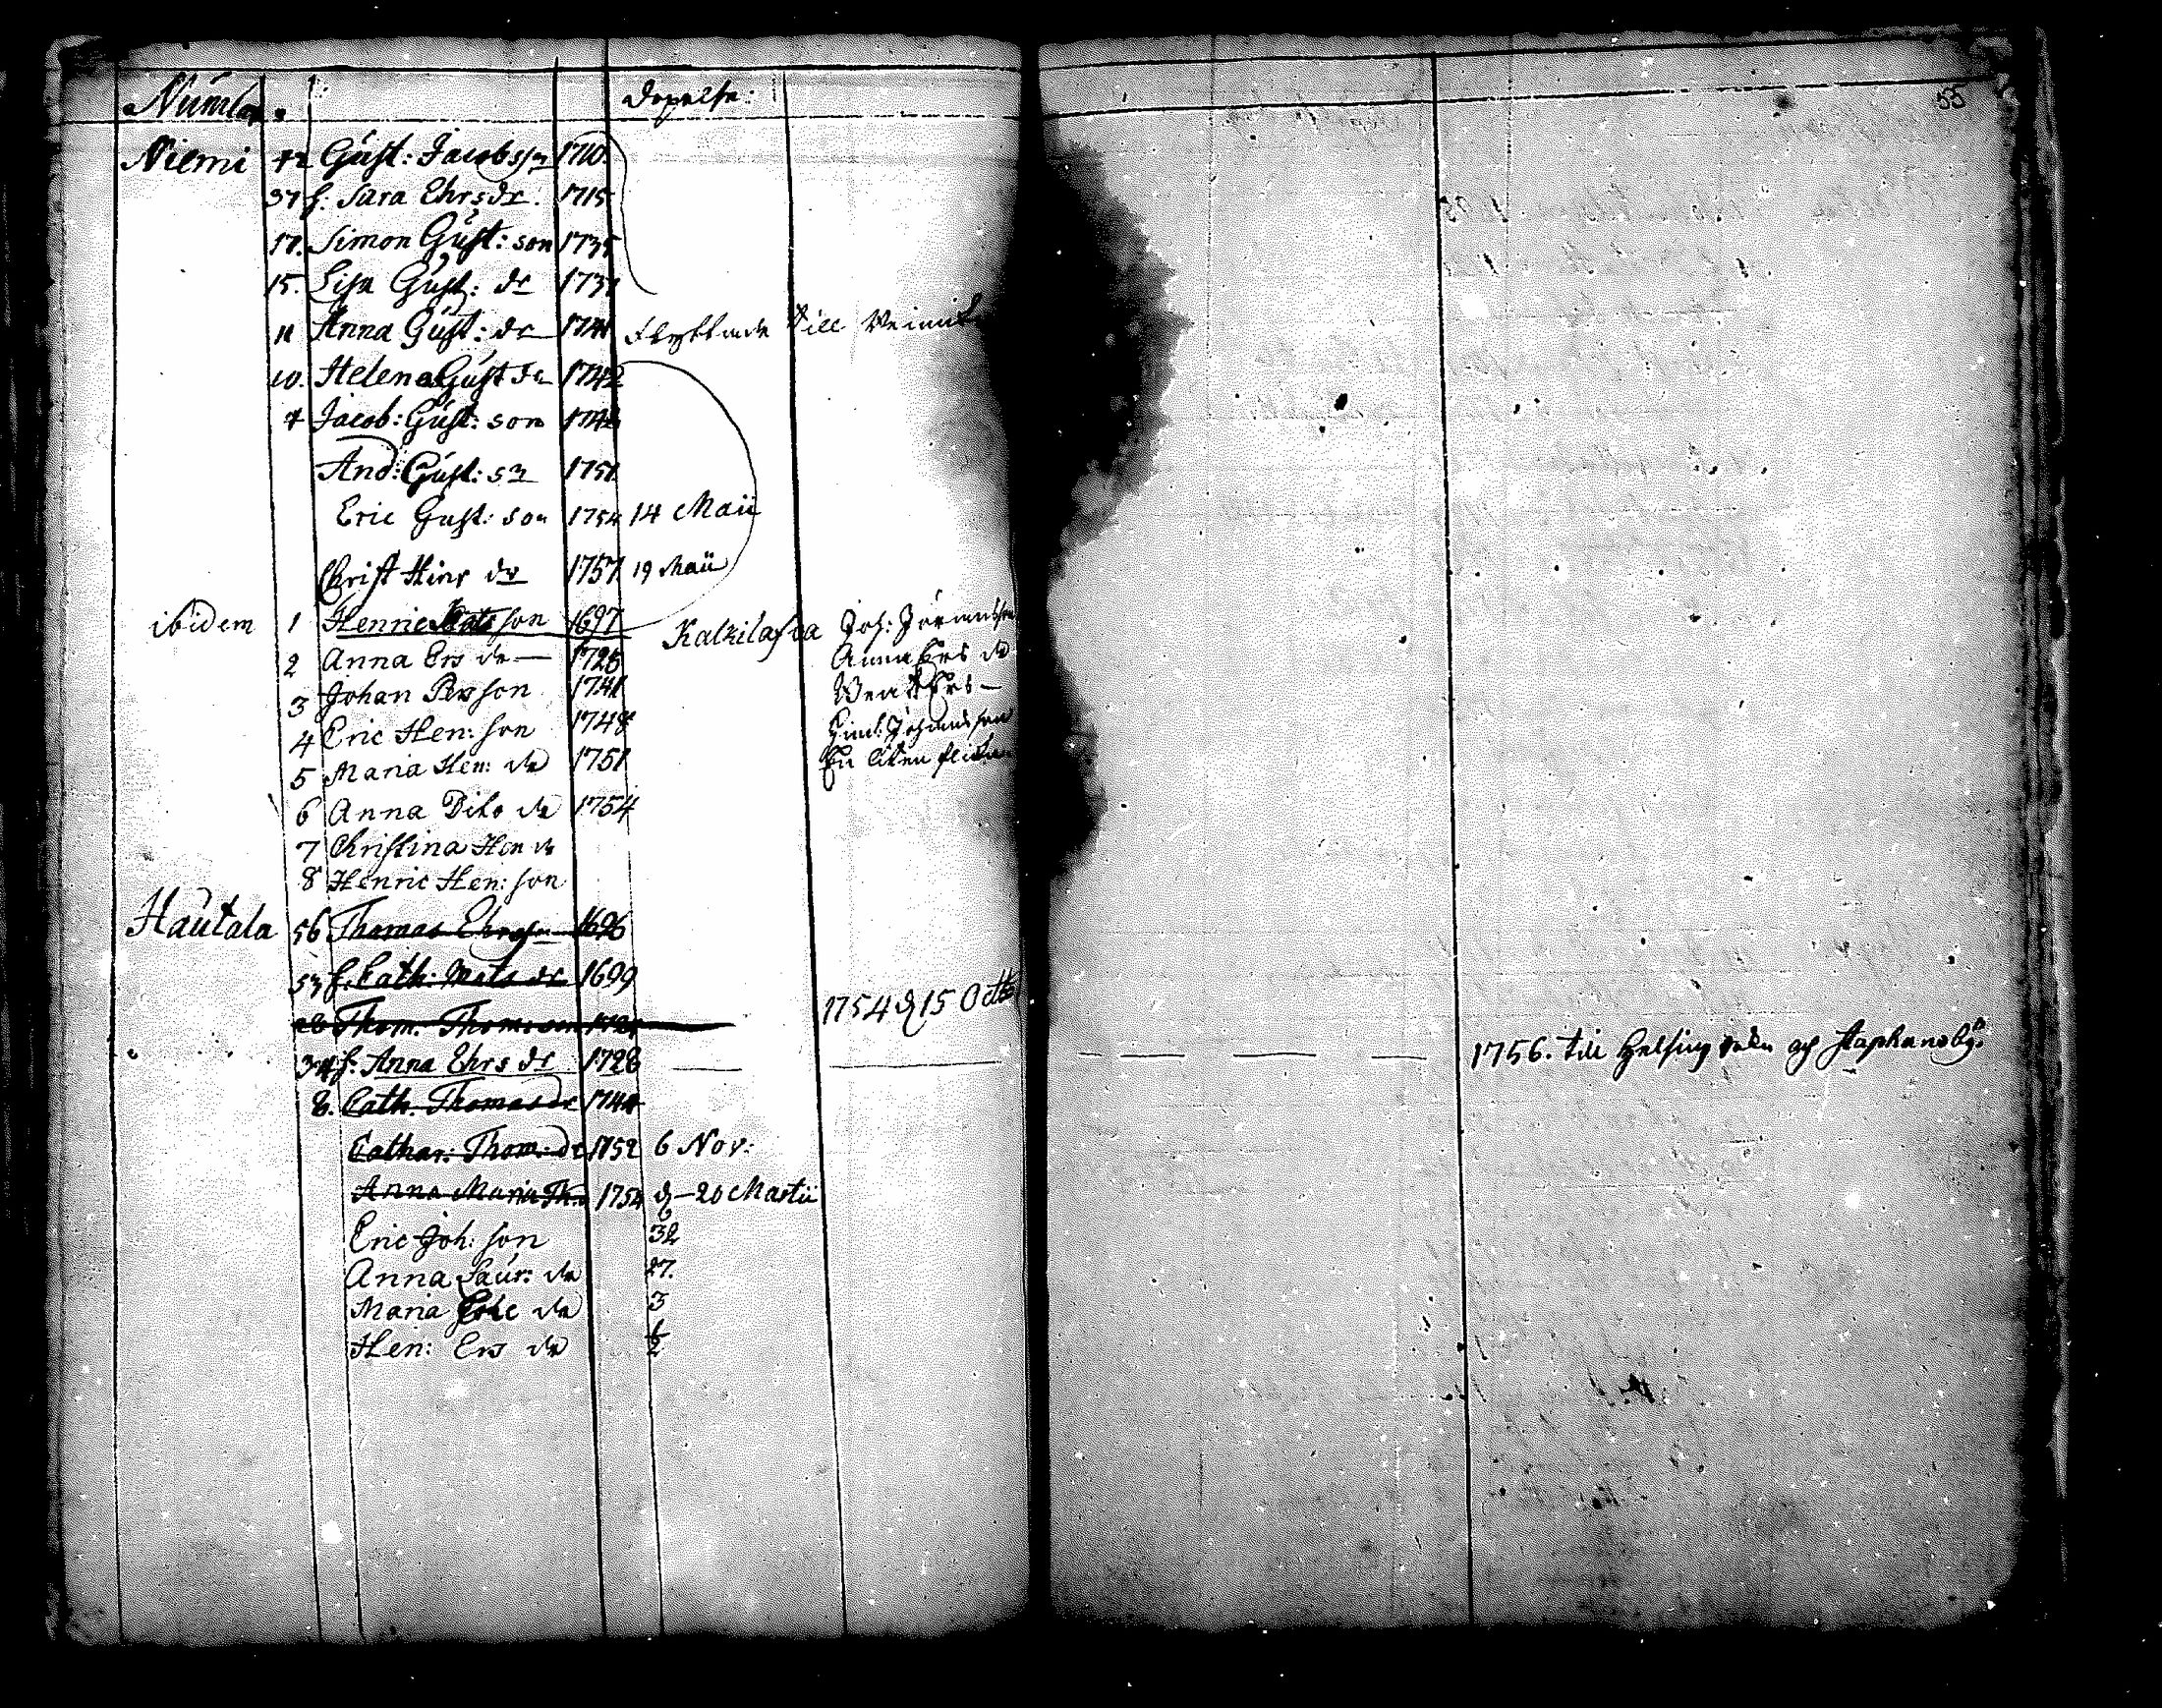 Numla. Döpelse: 55
Niemi 42 Gust: Jacobss:n 1710.
37 h: Sara Ehrsdr. 1715
17. Simon Gust: son 1735
15. Lisa Gust: dr 1737
11 Anna Gust: dr 1741 flyttade till
10. Helena Gust dr 1742
7 Jacob: Gust: son
And: Gust: sn 1751
Eric Gust: son 1754 14 Maii
Christ Hinr dr 1757 19 Maii
ibidem 1 Henric Mats son 1697 Joh:
2 Anna Ers dr — 1725 Anna Ers dr
3 Johan Person 1741
4 Eric Hen: son 1748 Hind: Johansson
5 Maria Hen: dr 1751 En liten flicka
6 Anna Dito dr 1754
7 Christina Hen dr
8 Henric Hen: son
Hautala 56 Thomas Ehrsson 1696
53 h. Cath: Mats dr 1699
28 Thom. Thomeson 1754 d 15 Octb
34 h. Anna Ehrs dr 1728 — — — — — 1756. till Helsing
8. Cath. Thomasdr 1744
Cathar: Thom: dr 1752 6 Nov:
Anna Maria Th: 1754 d — 20 Martii
Eric Joh: son 32
Anna Laur: dr 27.
Maria Eric dr 3
Hen: Ers dr 1/2